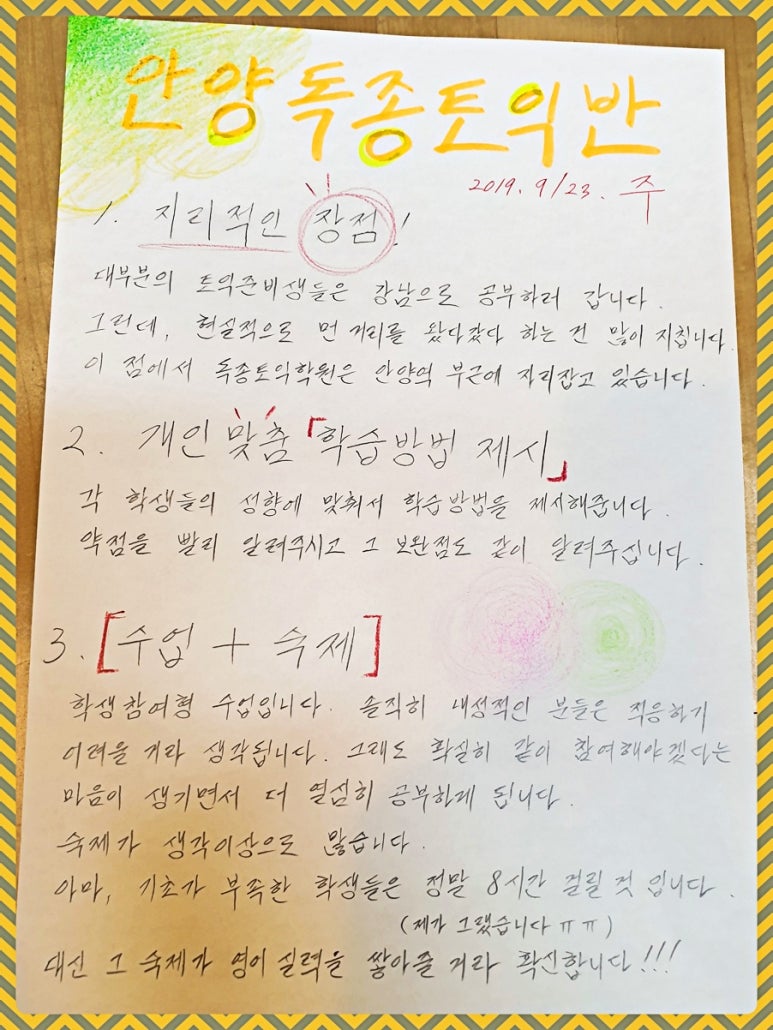 안양독종토익반
2019. 9/23. 주
1. 지리적인 장점!
대부분의 토익준비생들은 강남으로 공부하러 갑니다.
그런데, 현실적으로 먼 거리를 왔다갔다 하는 건 많이 지칩니다.
이 점에서 독종토익학원은 안양역 부근에 자리잡고 있습니다.
2. 개인 맞춤 「학습방법 제시」
각 학생들의 성향에 맞춰서 학습방법을 제시해줍니다.
약점을 빨리 알려주시고 그 보완점도 같이 알려주십니다.
3. [수업 + 숙제]
학생참여형 수업입니다. 솔직히 내성적인 분들은 적응하기
어려울 거라 생각됩니다. 그래도 확실히 같이 참여해야겠다는
마음이 생기면서 더 열심히 공부하게 됩니다.
숙제가 생각이상으로 많습니다.
아마, 기초가 부족한 학생들은 정말 8시간 걸릴 것 입니다.
(제가 그랬습니다 ㅠㅠ)
대신 그 숙제가 영어 실력을 쌓아줄 거라 확신합니다!!!